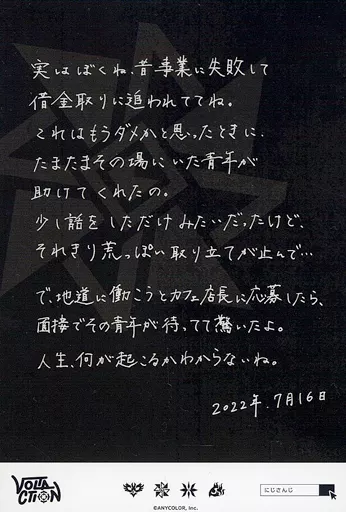 実はぼくね、昔事業に失敗して
借金取りに追われててね。
これはもうダメかと思ったときに、
たまたまその場にいた青年が
助けてくれたの。
少し話をしただけみたいだったけど、
それきり荒っぽい取り立てが止んで…
で、地道に働こうとカフェ店長に応募したら、
面接でその青年が待ってて驚いたよ。
人生、何が起こるかわからないね。
2022年.7月16日
VOLTACTION
にじさんじ
©ANYCOLOR, Inc.